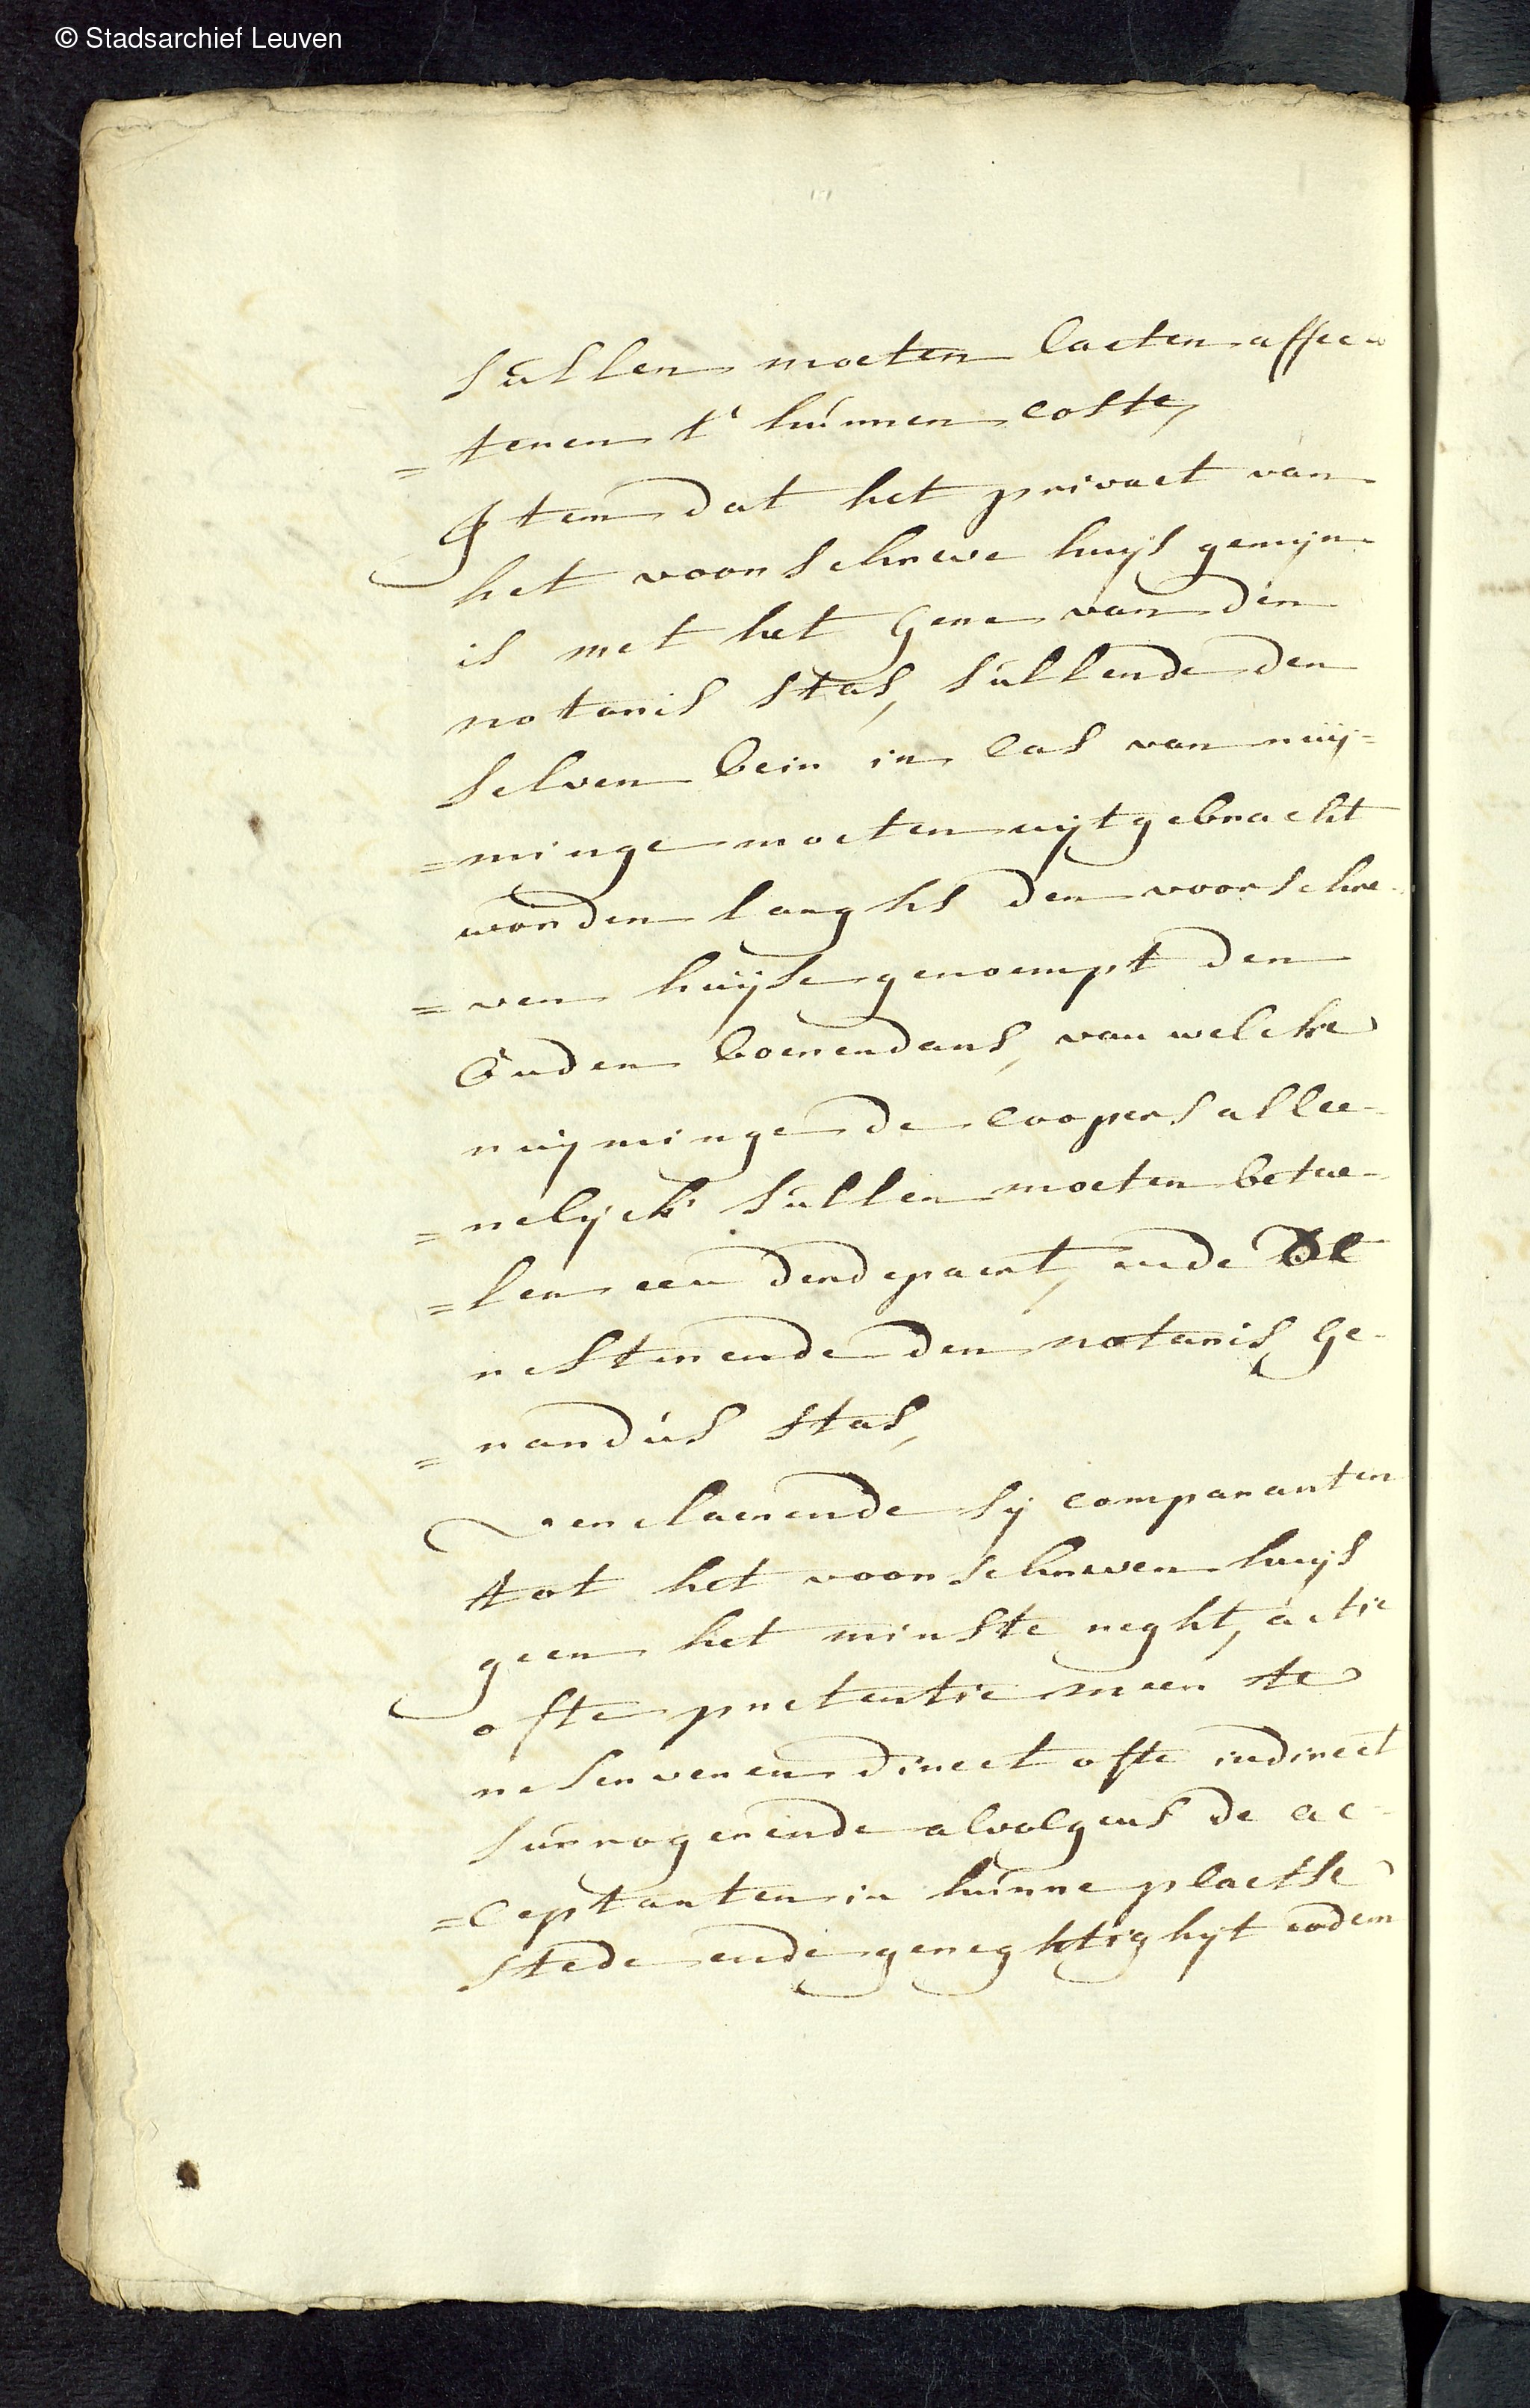 © Stadsarchief Leuven
sullen moeten laeten affec
=teren t' hunnen coste,
Item dat het privaet van
het voorschreve huys gemyn
is met het gene van den
notaris Stas, sullende den
selven bein in cas van ruij=
=minge moeten uijtgebracht
worden langhs den voorschre
=ven huijse genoempt den
Ouden boerendans, van welcke
ruijminge de coopers allee-
=nelyck sullen moeten betae-
=len een derdepaert, ende de
resterende den notaris Ge-
=rardus Stas,
Verclaerende sij comparanten
tot het voorschreven huijs
geen het minste reght, actie
ofte pretentie meer te
reserveren direct ofte indirect
surrogerende alvolgens de ac-
=ceptanten in hunne plaetse
stede ende gereghtighyt eodem